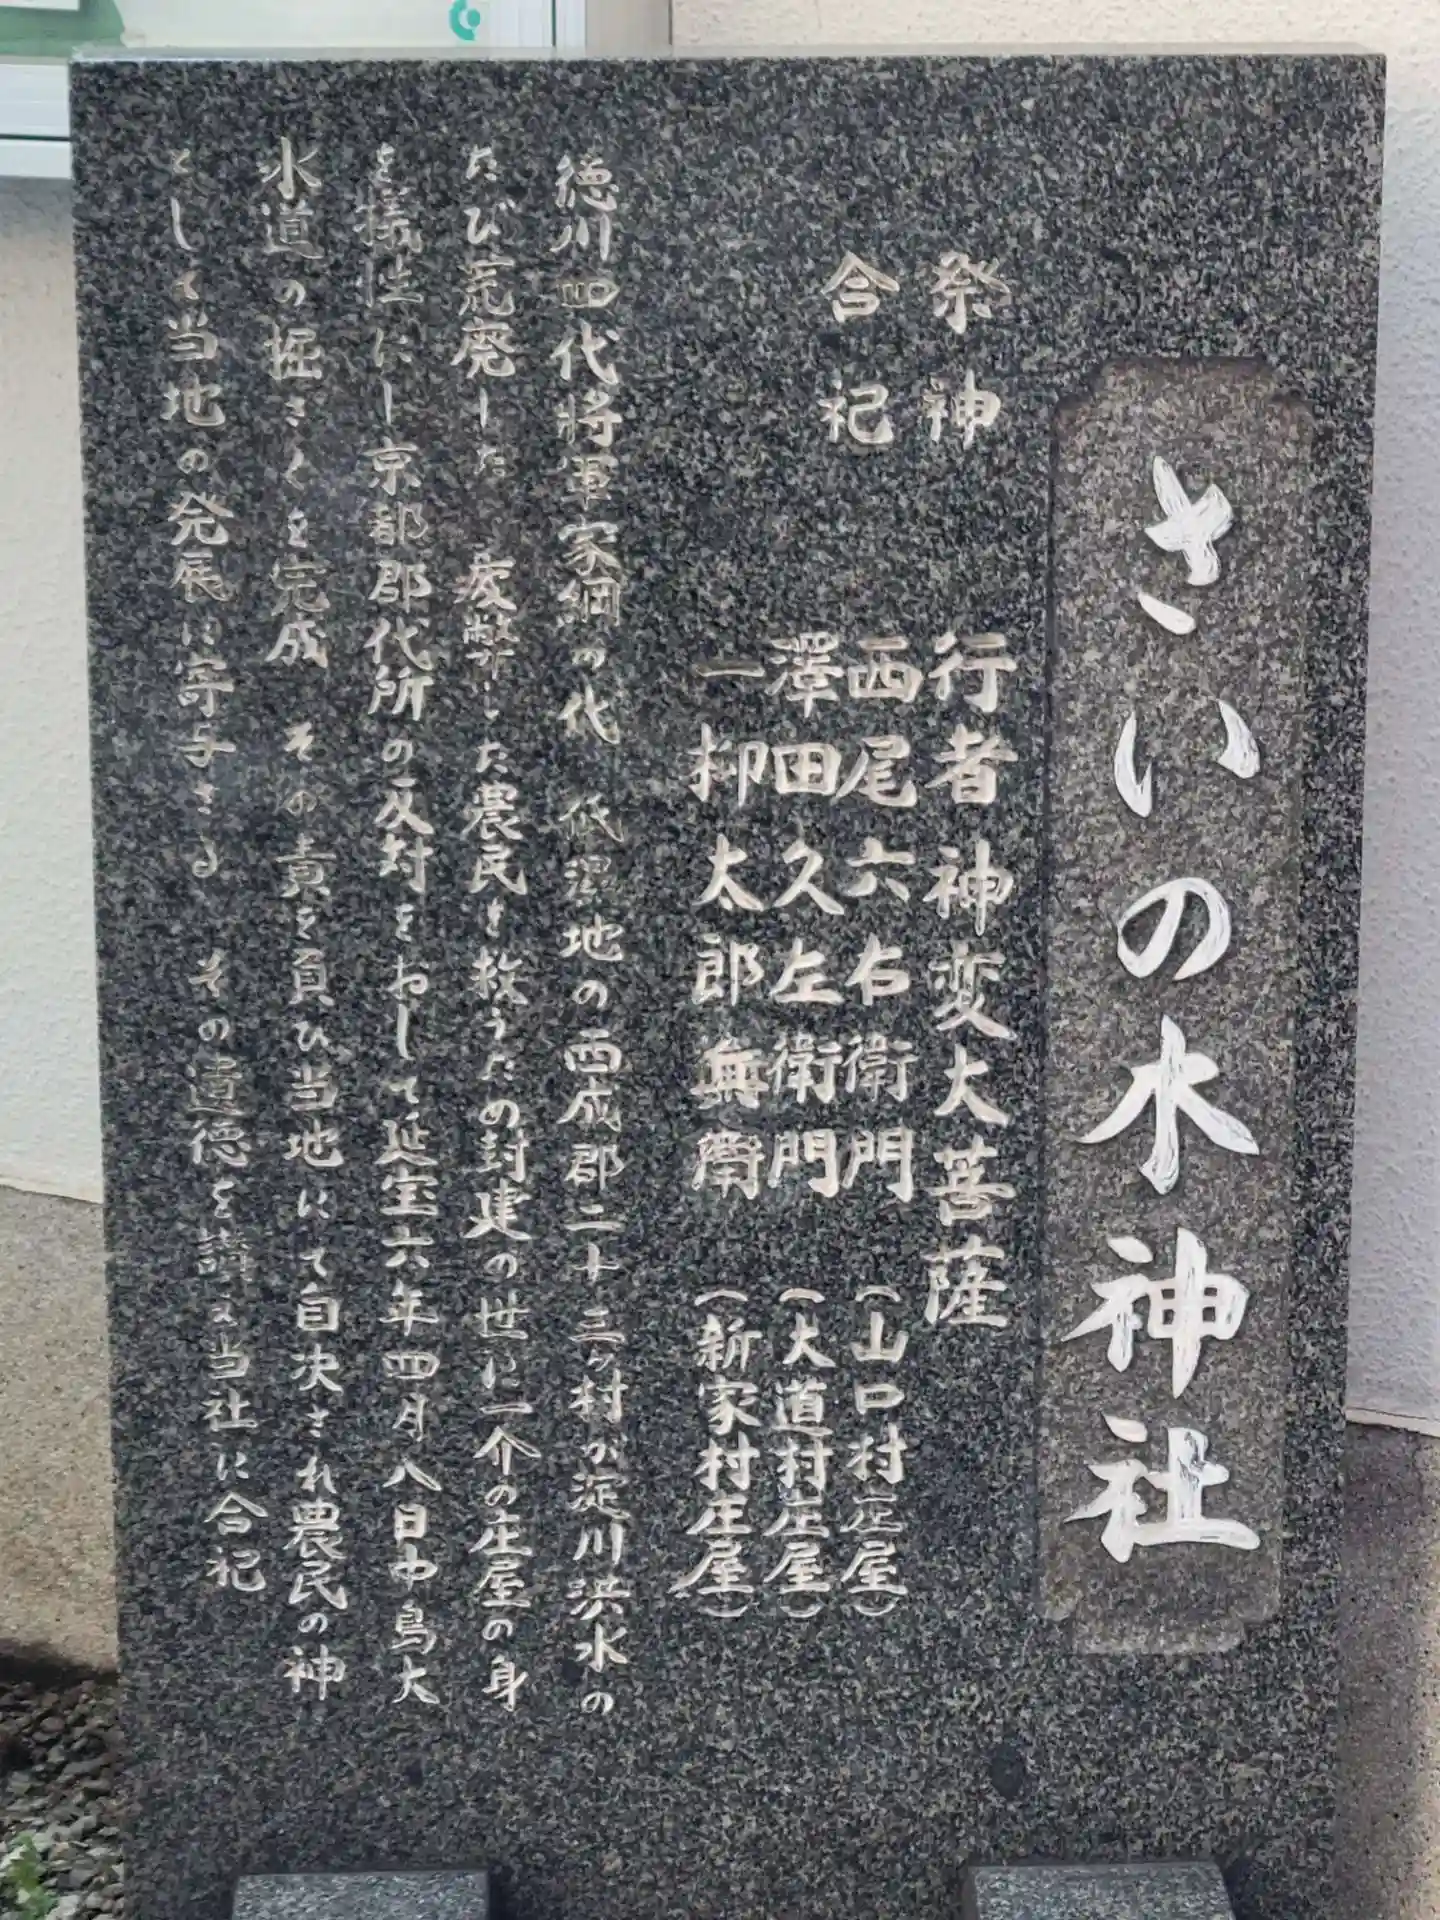 さいの水神社
祭神 行者神変大菩薩
合祀 西尾六右衛門 (山口村庄屋)
澤田久左衛門 (大道村庄屋)
一柳太郎兵衛 (新家村庄屋)
徳川四代将軍家綱の代 低湿地の西成郡二十三ヶ村が淀川洪水の
たび荒廃した 疲弊した農民を救うため封建の世に一介の庄屋の身
を犠牲にし京都郡代所の反対をおして延宝六年四月八日中島大
水道の掘さくを完成 その責を負ひ当地にて自決され農民の神
として当地の発展に寄与さる その遺徳を讃え当社に合祀